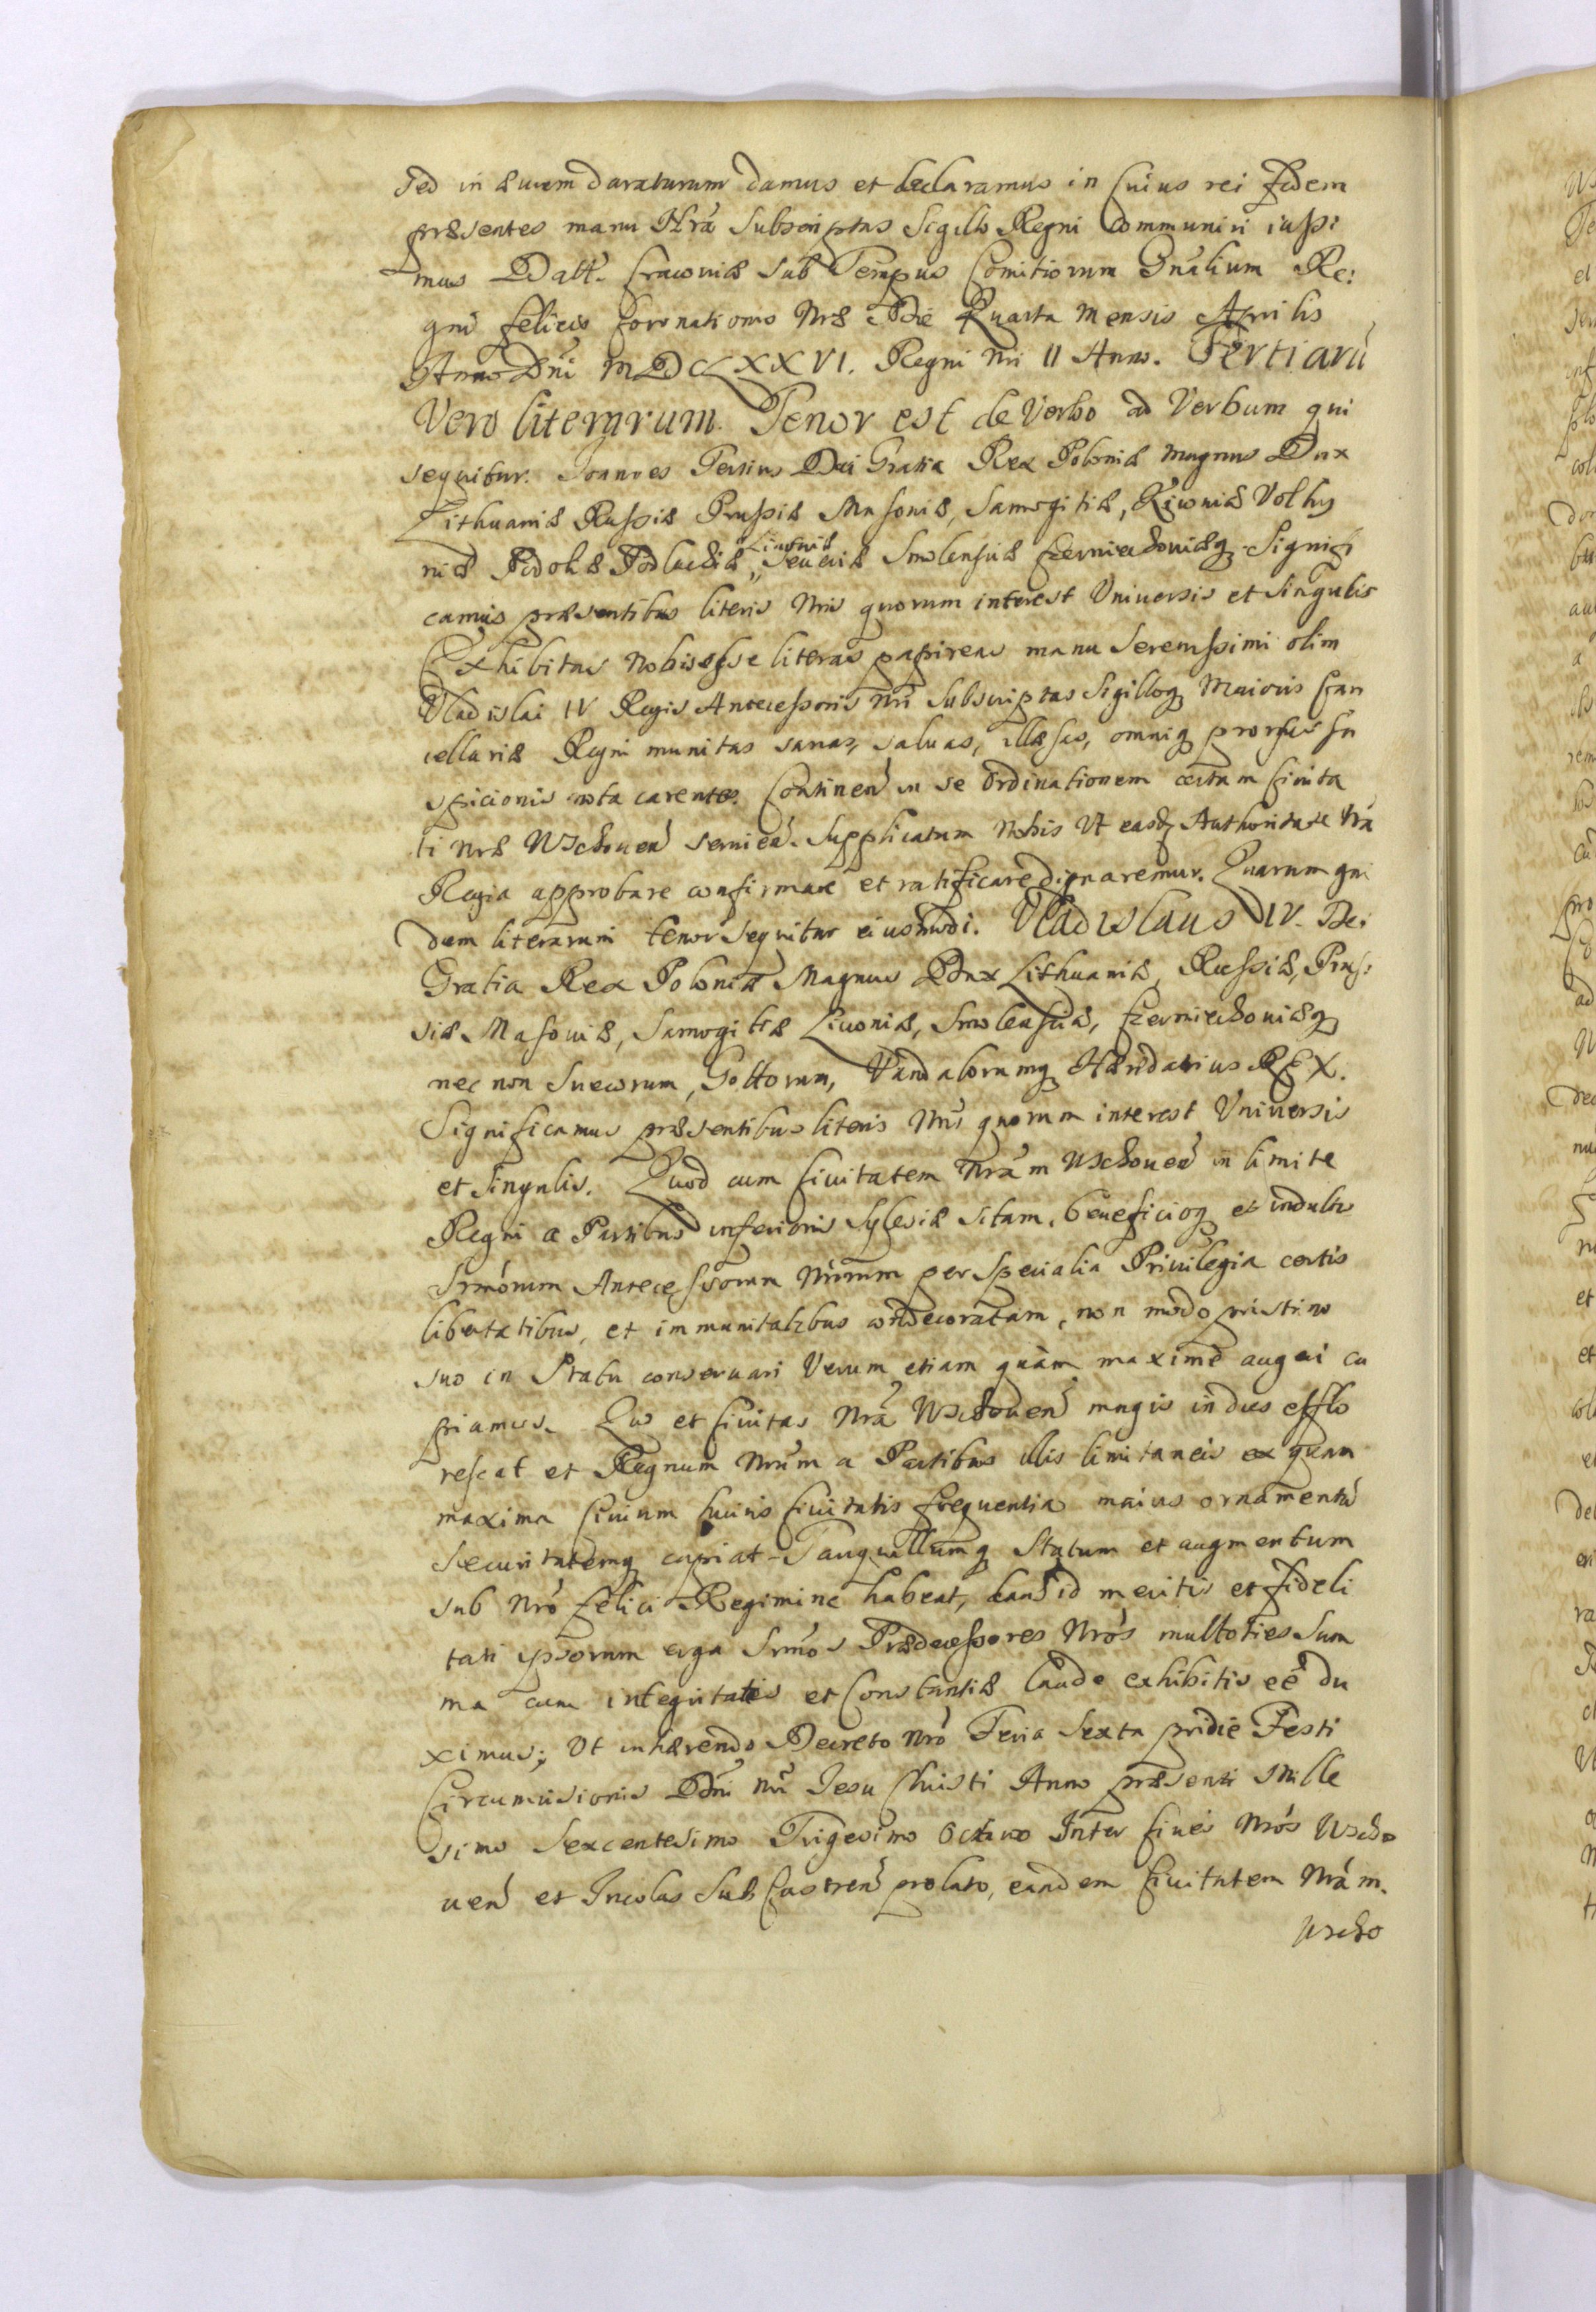 sed in æuum daraturum damus et declaramus in Cuius rei fidem
præsentes manu Nrã Subscriptas Sigillo Regni Communiri iussi
mus Datt. Cracouiæ sub Tempus Comitiorum Gnãlium Re:
gni felicis Coronationis Nræ Die Quarta Mensis Aprilis
Anno Dñi MDCLXXVI. Regni Nri II Anno. Tertiarũ
Vero literarum Tenor est de Verbo ad Verbum qui
sequitur. Joannes Tertius Dei Gratia Rex Poloniæ Magnus Dux
Lithuaniæ Russiæ Prussiæ Masouiæ, Samogitiæ, Kiouiæ Volhy
niæ Podoliæ Podlachiæ, Liuoniæ Seueriæ Smolensciæ Czerniechouiæq Signifi
camus præsentibus literis Nris quorum interest Vniuersis et Singulis
Exhibitas Nobis esse literas papireas manu Serenissimi olim
Vladislai IV Regis Antecessoris Nri Subscriptas Sigilloq Maioris Can
cellariæ Regni munitas sanas, saluas, illæsas, omniq prorsus su
spicionis nota carentes. Continen in se Ordinationem certam Ciuita
ti Nræ Wschouen seruien. Supplicatum Nobis Vt easdq Authoritate Nrã
Regia approbare confirmare et ratificare dignaremur. Quarum qui
dem literarum tenor sequitur eiusmodi. Vladislaus IV. Dei
Gratia Rex Poloniæ Magnus Dux Lithuaniæ, Russiæ, Prus:
siæ Masouiæ, Samogitiæ Liuoniæ, Smolensciæ, Czerniechouiæq
nec non Suecorum, Gottorum, Vandalorumq Hæredatrius REX.
Significamus præsentibus literis Nris quorum interest Vniuersis
et Singulis. Quod cum Ciuitatem Nrãm Wschouen in limite
Regni a Partibus inferioris Sylesiæ sitam, beneficioq et indultu
Srmorum Antecessorum Nrorum per Specialia Priuilegia certis
libertatibus, et immunitatibus condecoratam, non modo pristino
suo in Statu conseruari Verum etiam quàm maximè augeri cu
piamus. Quo et Ciuitas Nrã Wschouen magis in dies efflo
rescat et Regnum Nrum a Partibus illis limitaneis ex quam
maxima Ciuium huius Ciuitatis frequentia maius ornamentũ
Securitatemq capiat Tanquillumq Statum et augmentum
sub Nrõ felici Regimine habeat, haud id meritis et fideli
tati ipsorum erga Srmõs Prædecessores Nrõs multoties Sum
ma cum integritatis et Constantiæ laude exhibitis eẽ du
ximus; Vt inhærendo Decreto Nrõ Feria Sexta pridie Festi
Circumcisionis Dñi Nri Jesu Christi Anno præsenti Mille
simo Sexcentesimo Trigesimo Octauo Inter Ciues Nrõs Wscho
uen et Incolas Sub Castren prolato, eandem Ciuitatem Nrãm.
Wscho